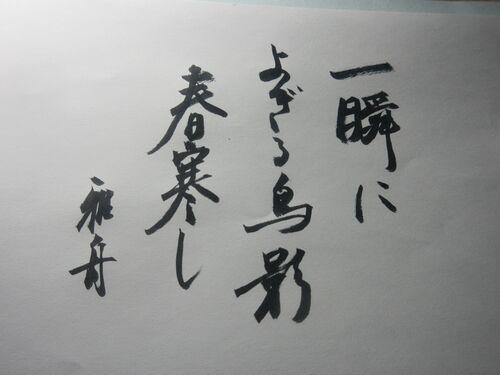 一瞬に
よぎる鳥影
春寒し
雅舟